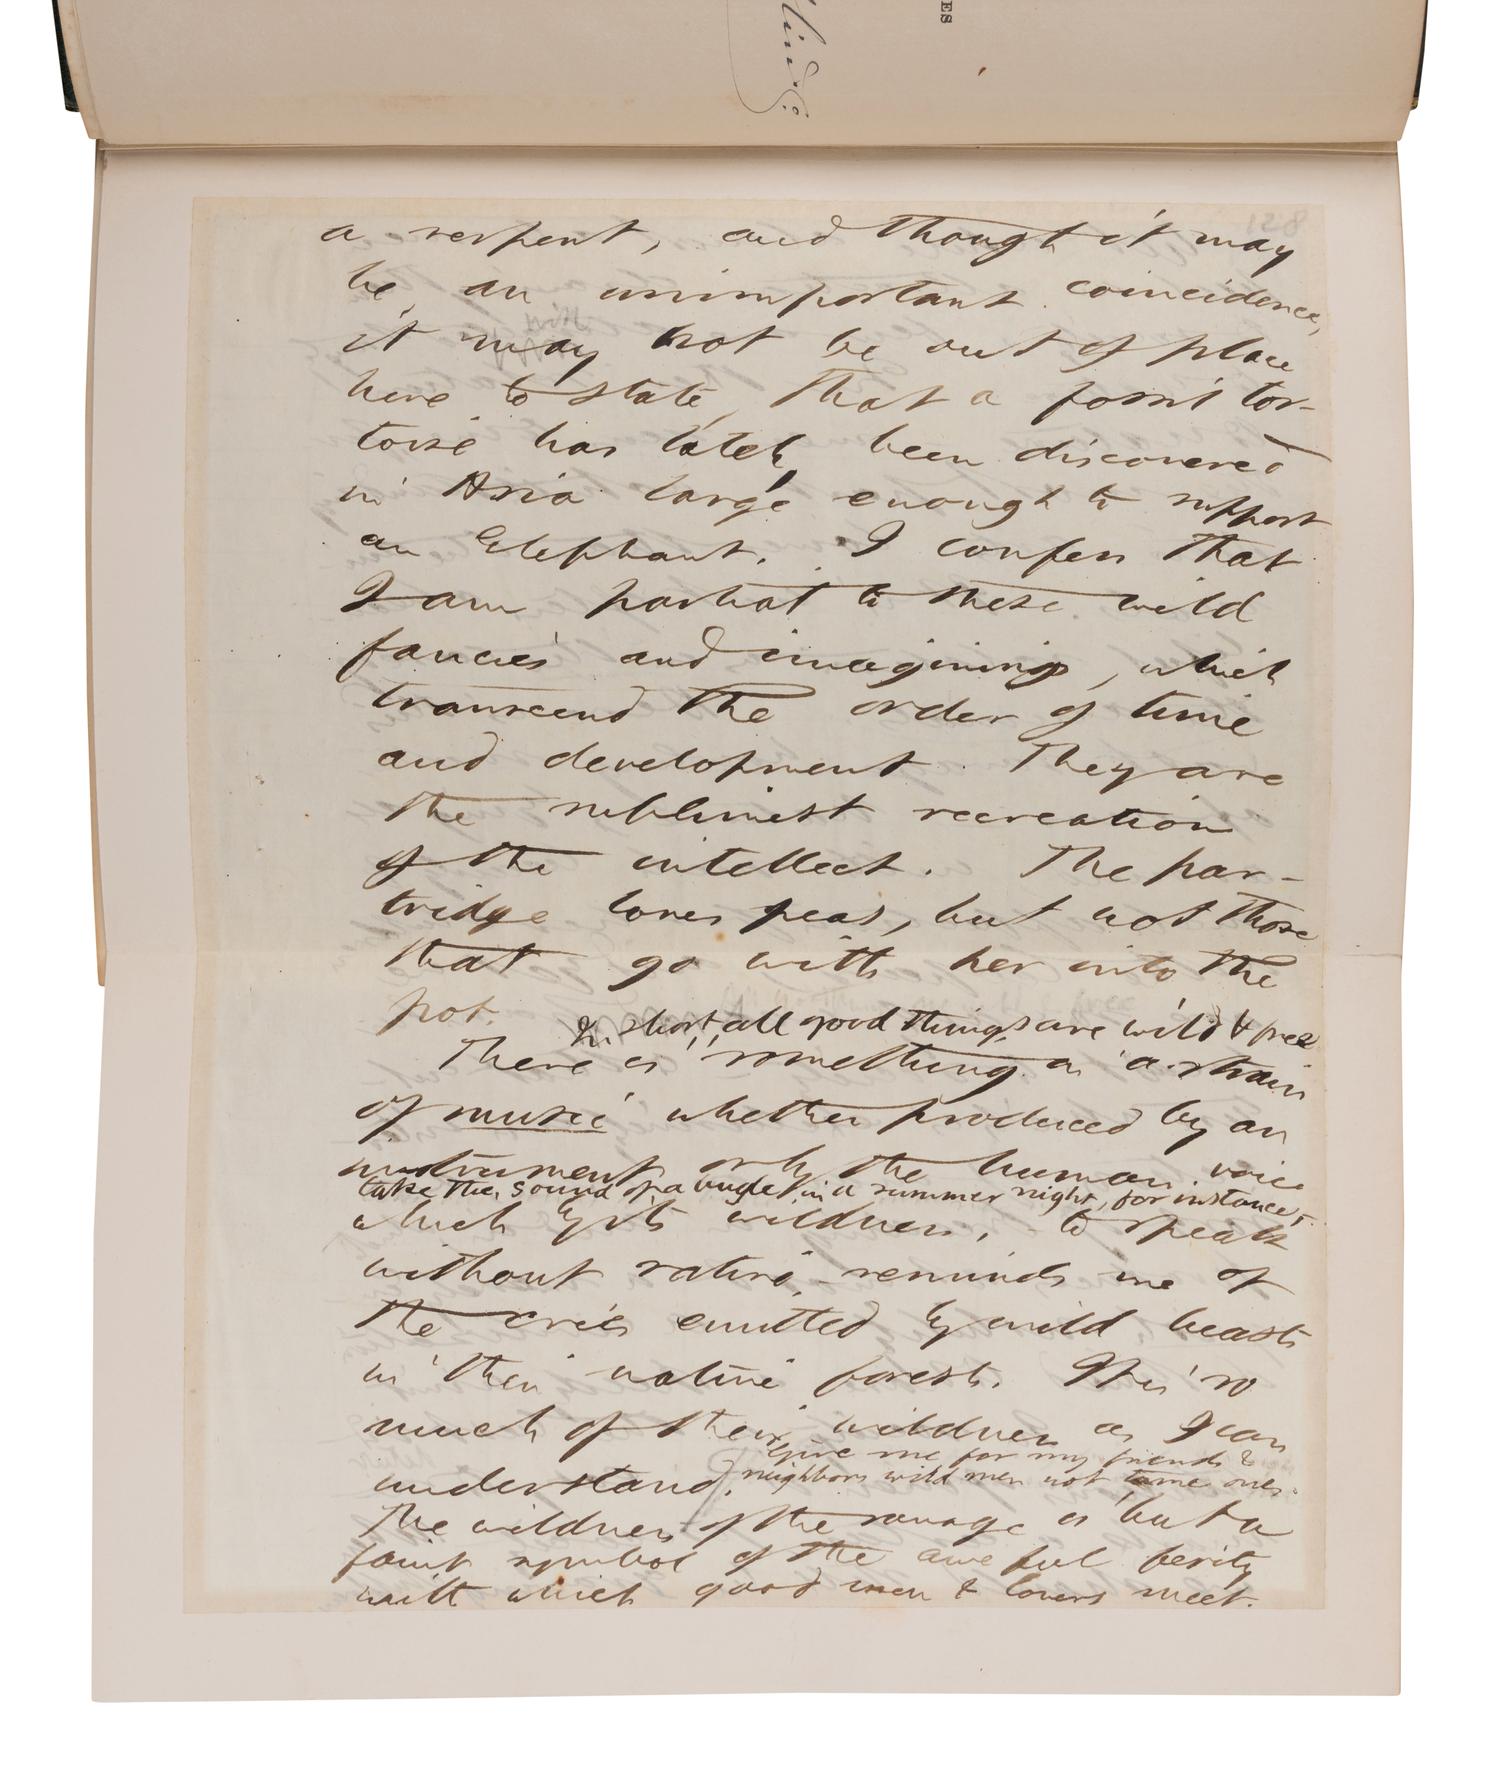 ES
a serpent, and though it may
be an unimportant coincidence,
it may not be out of place
here to state, that a fossil tor-
toise has lately been discovered
in Asia large enough to support
an Elephant. I confess that
I am partial to these wild
fancies and imaginings, which
transcend the order of time
and development. They are
the sublimest recreation
of the intellect. The par-
tridge loves peas, but not those
that go with her into the
pot.
In short, all good things are wild & free
There is something in a strain
of music whether produced by an
instrument or by the human voice
take the sound of a bugle in a summer night, for instance,-
which by its wildness, to speak
without satire, reminds me of
the cries emitted by wild beasts
in their native forests. It is so
much of their wildness as I can
understand.
Give me for my friends &
neighbors wild men not tame ones.
The wildness of the savage is but a
faint symbol of the awful ferity
with which good men & lovers meet.